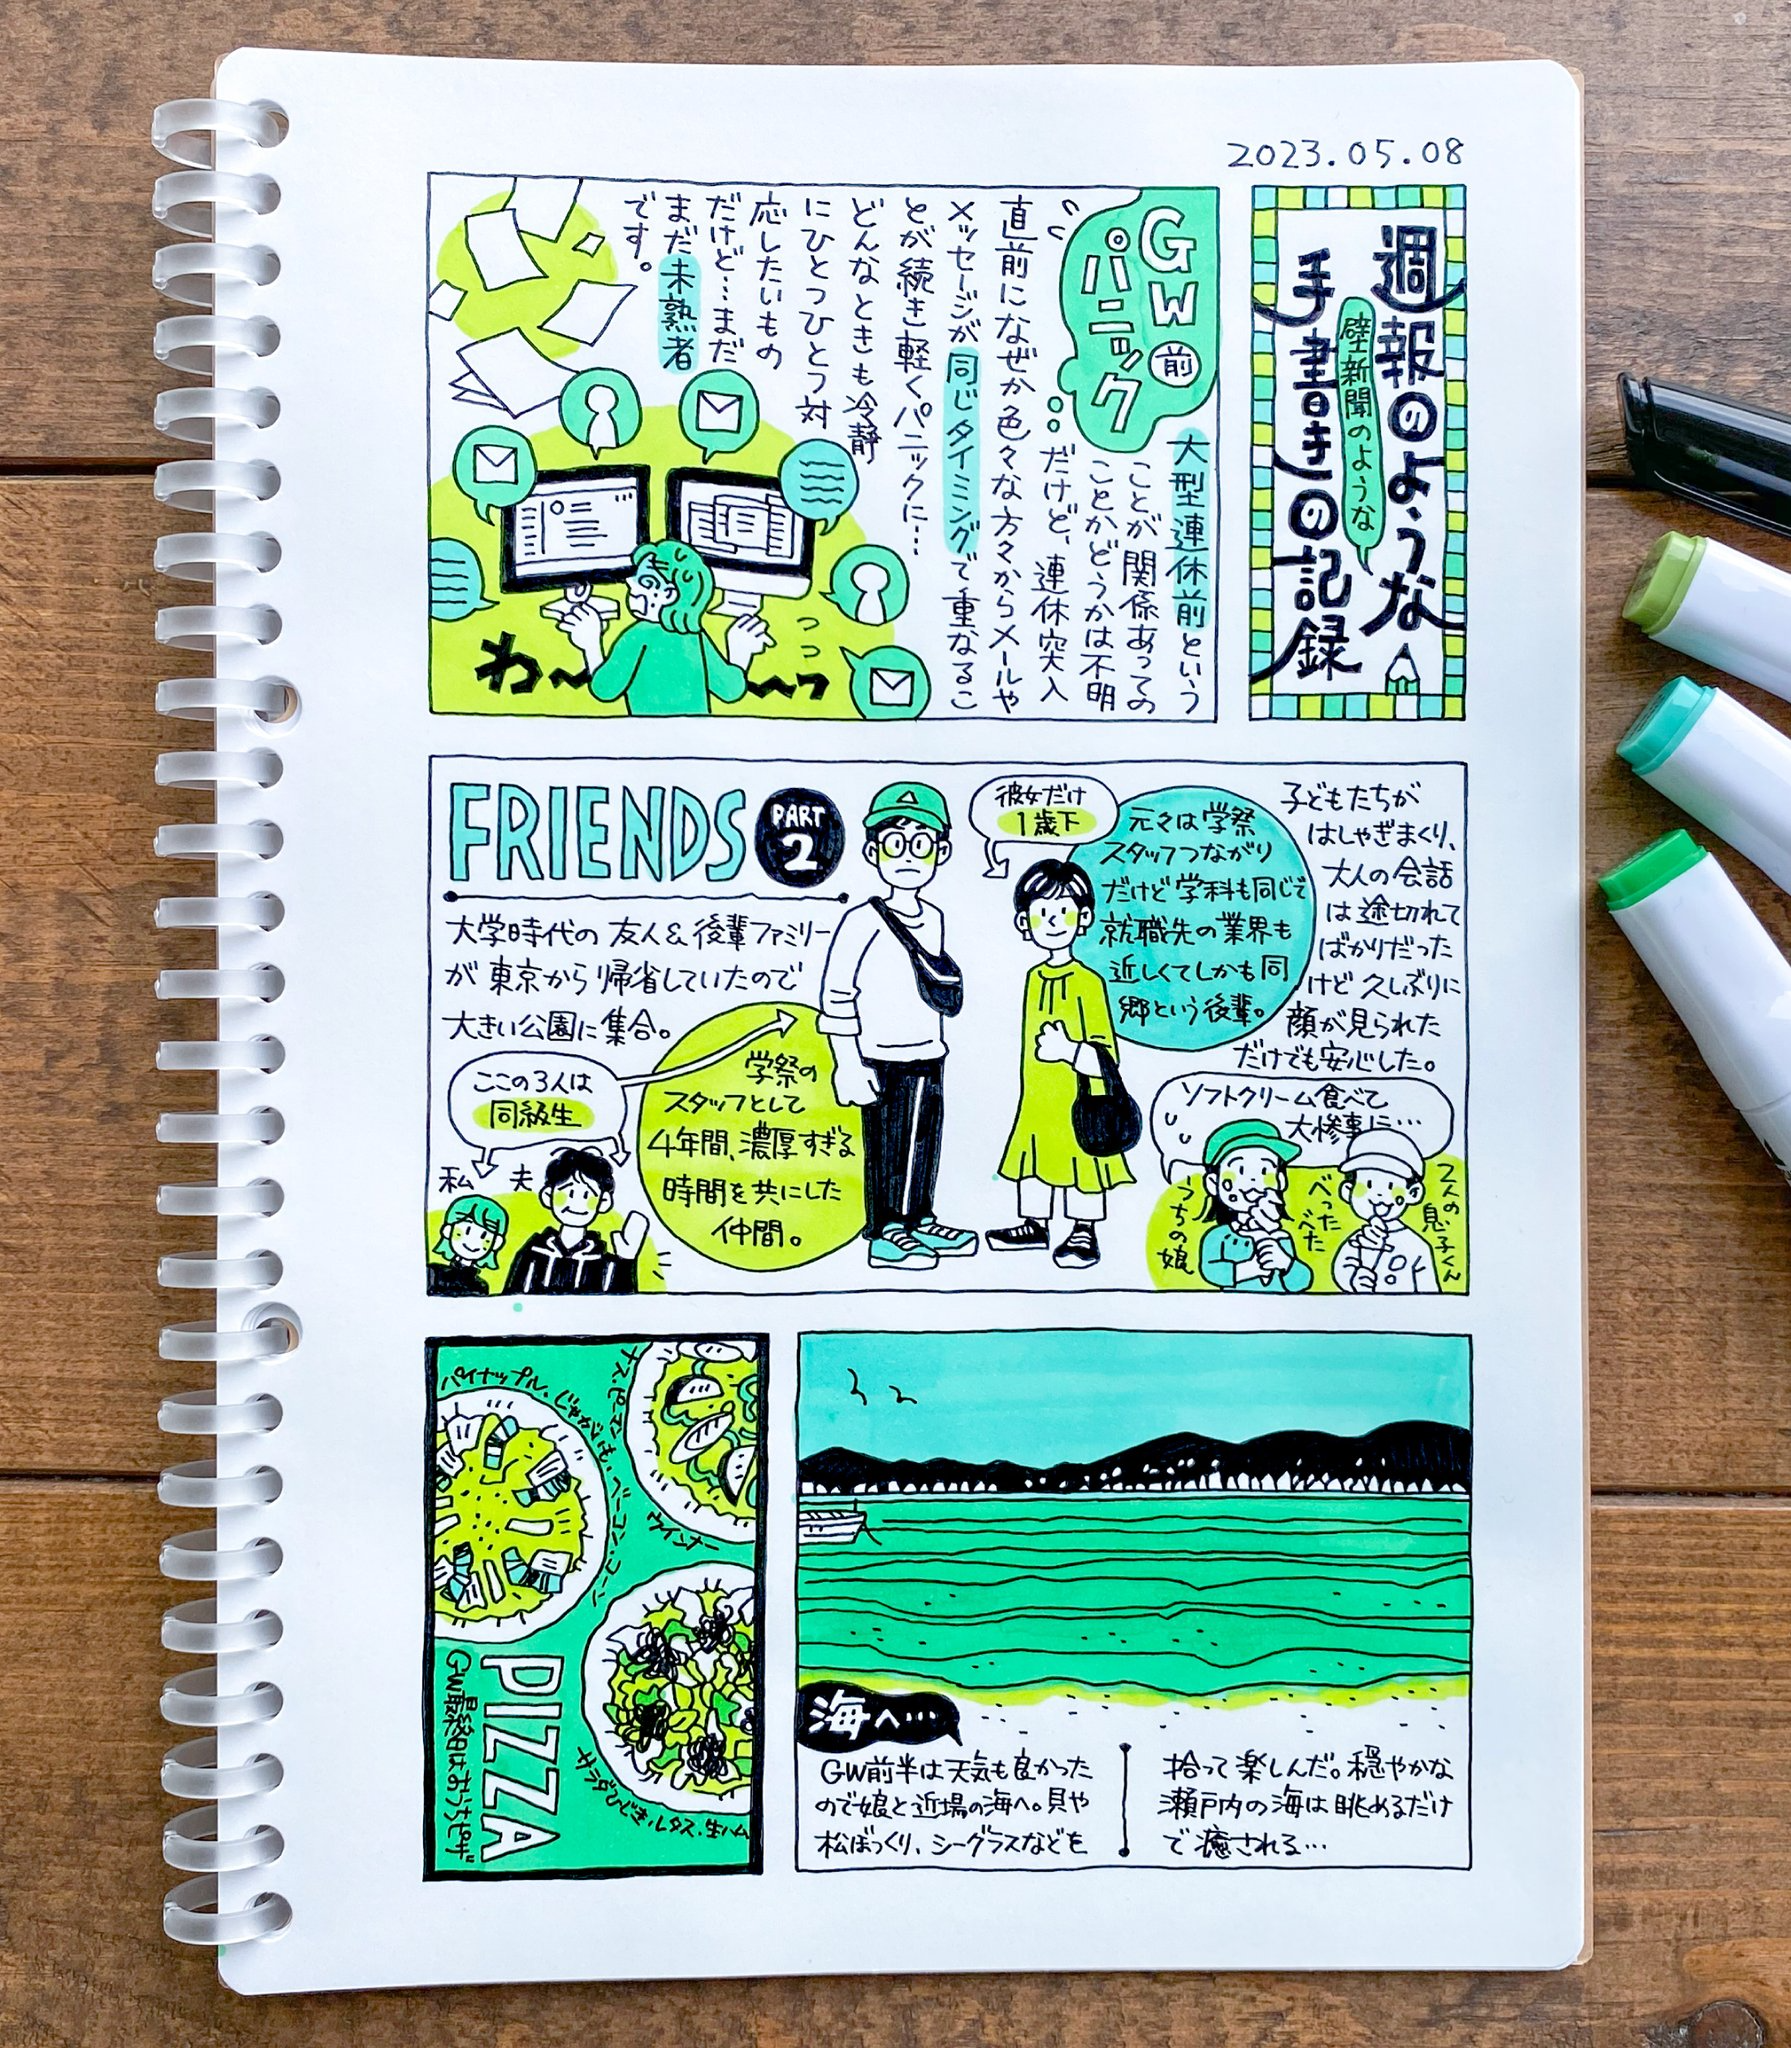 2023.05.08
週報のような
壁新聞のような
手書きの記録
GW前
パニック
大型連休前という
ことが関係あっての
ことかどうかは不明
だけど、連休突入
直前になぜか色々な方々からメールや
メッセージが同じタイミングで重なるこ
とが続き軽くパニックに…
どんなときも冷静
にひとつひとつ対
応したいもの
だけど…まだ
まだ未熟者
です。
わ〜〜〜ッ
FRIENDS
PART
2
大学時代の友人&後輩ファミリー
が東京から帰省していたので
大きい公園に集合。
ここの3人は
同級生
私
夫
学祭の
スタッフとして
4年間、濃厚すぎる
時間を共にした
仲間。
彼女だけ
1歳下
元々は学祭
スタッフつながり
だけど学科も同じで
就職先の業界も
近しくてしかも同
郷という後輩。
子どもたちが
はしゃぎまくり、
大人の会話
は途切れて
ばかりだった
けど久しぶりに
顔が見られた
だけでも安心した。
ソフトクリーム食べて
大惨事に…
うちの娘
べった
べた
2人の息子くん
パイナップル・じゃがいも・ベーコン・コーン
ナス・ピーマン
ウインナー
サラダひじき・レタス・生ハム
PIZZA
GW最終日はおうちピザ
海へ…
GW前半は天気も良かった
ので娘と近場の海へ。貝や
松ぼっくり、シーグラスなどを
拾って楽しんだ。穏やかな
瀬戸内の海は眺めるだけ
で癒される…